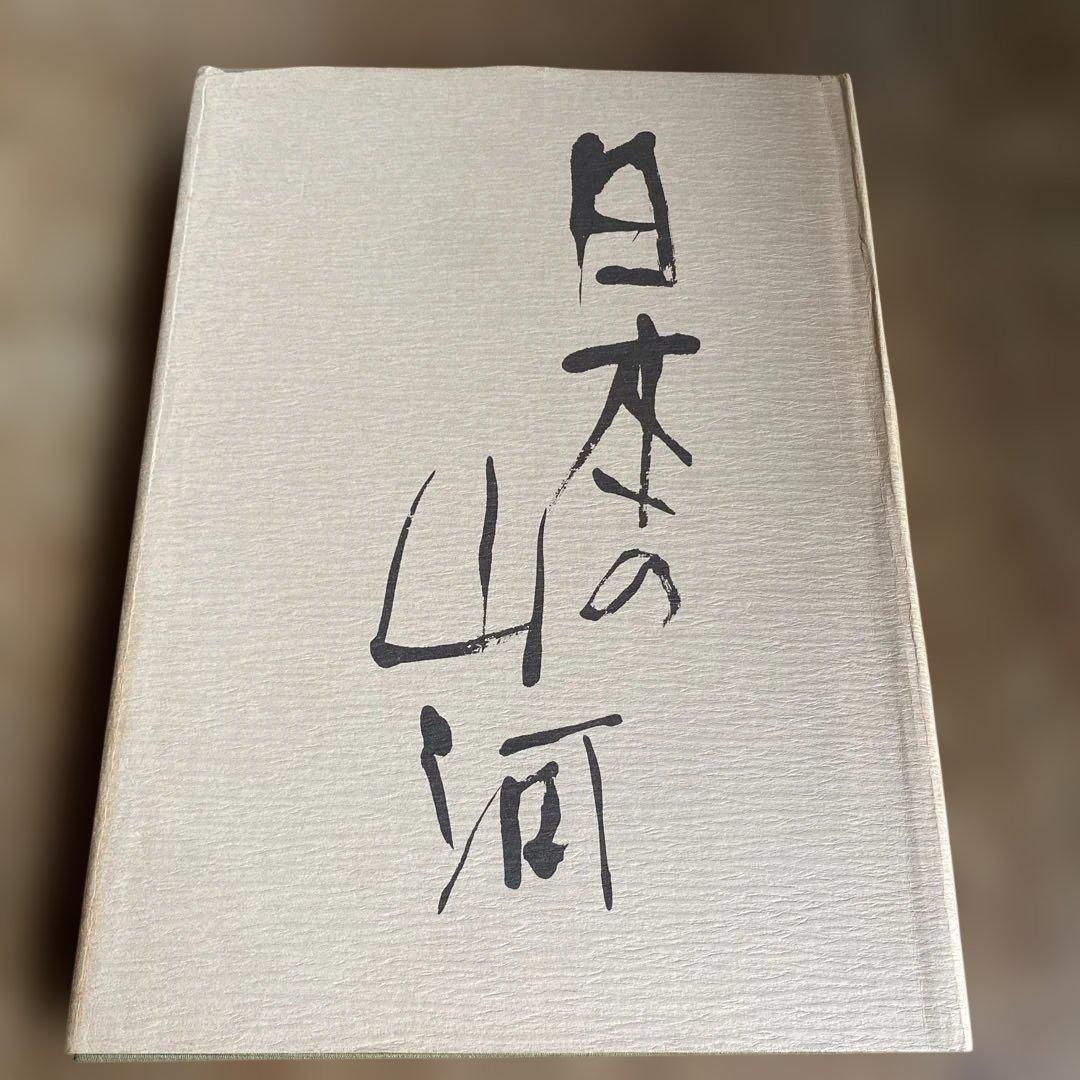 日本の
山河